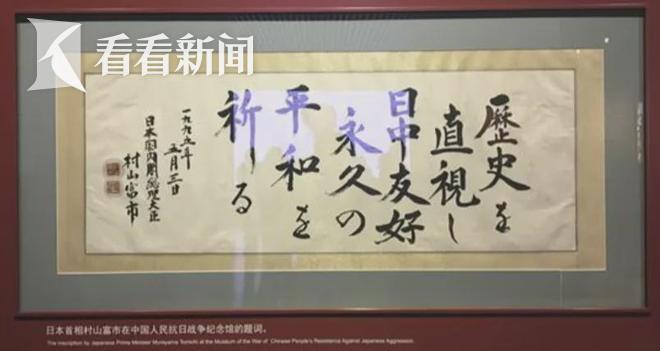 看看新闻
歴史を
直視し
日中友好
永久の
平和を
祈る
一九九五年
五月三日
日本国内閣総理大臣
村山富市
日本首相村山富市在中国人民抗日战争纪念馆的题词。
The inscription by Japanese Prime Minister Murayama Tomiichi at the Museum of the War of Chinese People's Resistance Against Japanese Aggression.